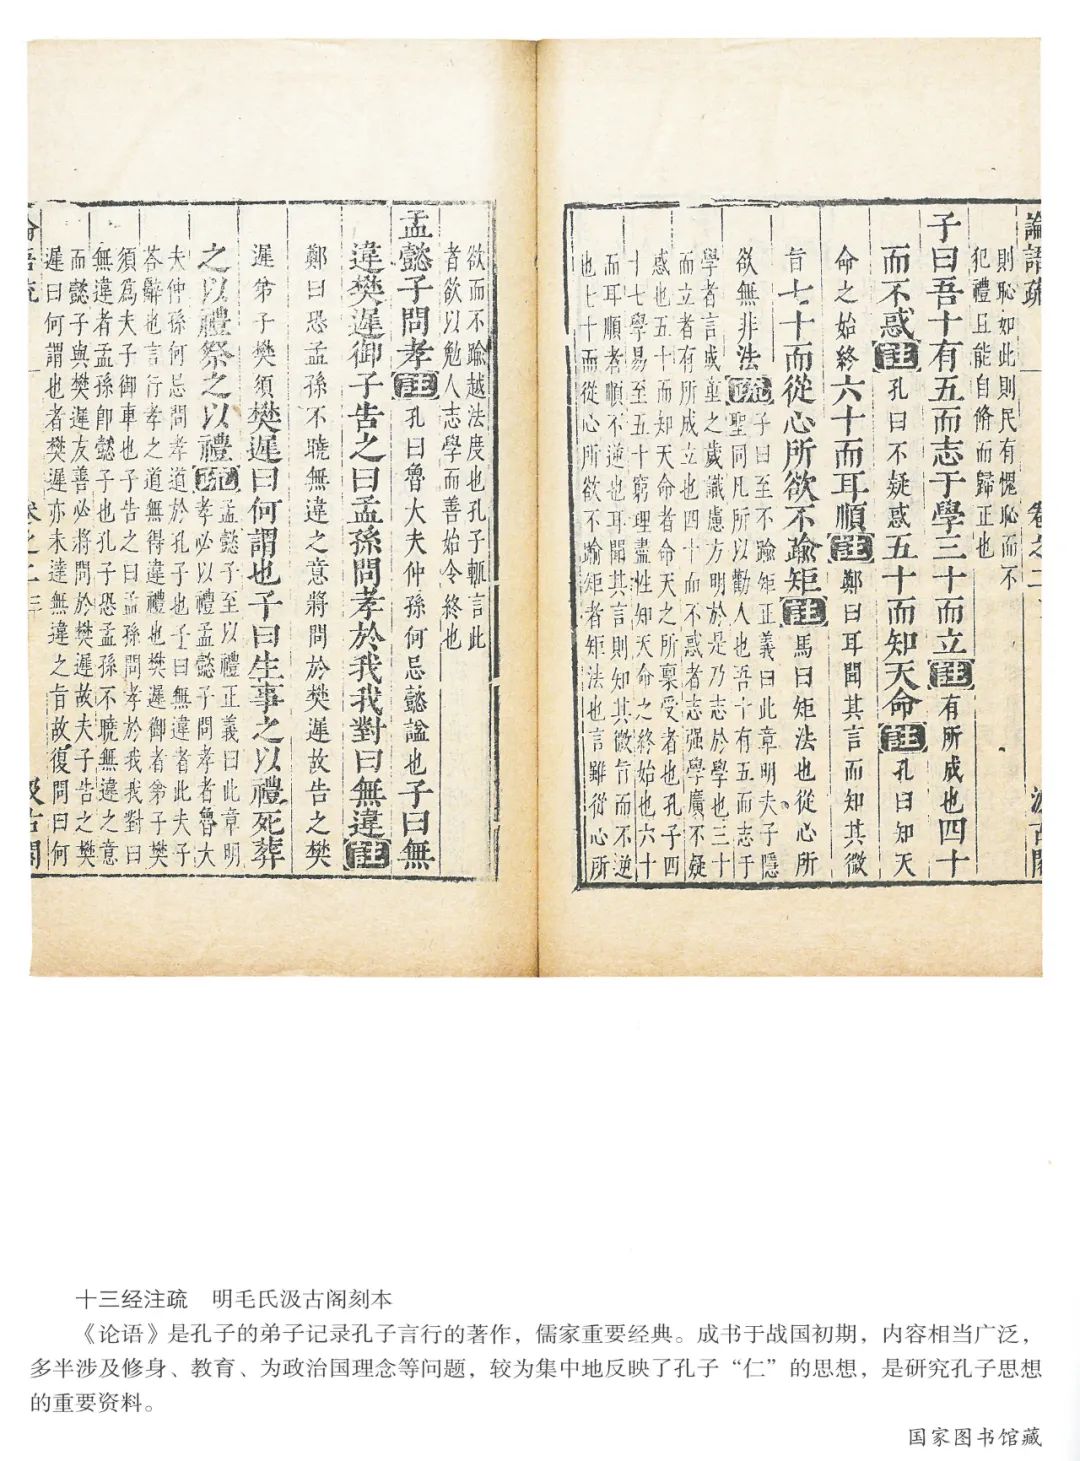 論語疏 卷之二 汲古閣
則恥如此則民有愧恥而不
犯禮且能自脩而歸正也
子曰吾十有五而志于學三十而立註有所成也四十
而不惑註孔曰不疑惑五十而知天命註孔曰知天
命之始終六十而耳順註鄭曰耳聞其言而知其微
旨七十而從心所欲不踰矩註馬曰矩法也從心所
欲無非法疏子曰至不踰矩正義曰此章明夫子隱
聖同凡所以勸人也吾十有五而志于
學者言成童之歲識慮方明於是乃志於學也三十
而立者有所成立也四十而不惑者志强學廣不疑
惑也五十而知天命者命天之所稟受者也孔子四
十七學易至五十窮理盡性知天命之終始也六十
而耳順者順不逆也耳聞其言則知其微旨而不逆
也七十而從心所欲不踰矩者矩法也言雖從心所
欲而不踰越法度也孔子輒言此
者欲以勉人志學而善始令終也
孟懿子問孝註孔曰魯大夫仲孫何忌懿謚也子曰無
違樊遲御子告之曰孟孫問孝於我我對曰無違註
鄭曰恐孟孫不曉無違之意將問於樊遲故告之樊
遲弟子樊須樊遲曰何謂也子曰生事之以禮死葬
之以禮祭之以禮疏孟懿子至以禮正義曰此章明
孝必以禮孟懿子問孝者魯大
夫仲孫何忌問孝道於孔子也子曰無違者此夫子
荅辭也言行孝之道無得違禮也樊遲御者弟子樊
須爲夫子御車也子告之曰孟孫問孝於我我對曰
無違者孟孫卽懿子也孔子恐孟孫不曉無違之意
而懿子與樊遲友善必將問於樊遲故夫子告之樊
遲曰何謂也者樊遲亦未達無違之旨故復問曰何
論語疏 卷之二 三 汲古閣
十三经注疏 明毛氏汲古阁刻本
《论语》是孔子的弟子记录孔子言行的著作，儒家重要经典。成书于战国初期，内容相当广泛，
多半涉及修身、教育、为政治国理念等问题，较为集中地反映了孔子“仁”的思想，是研究孔子思想
的重要资料。
国家图书馆藏